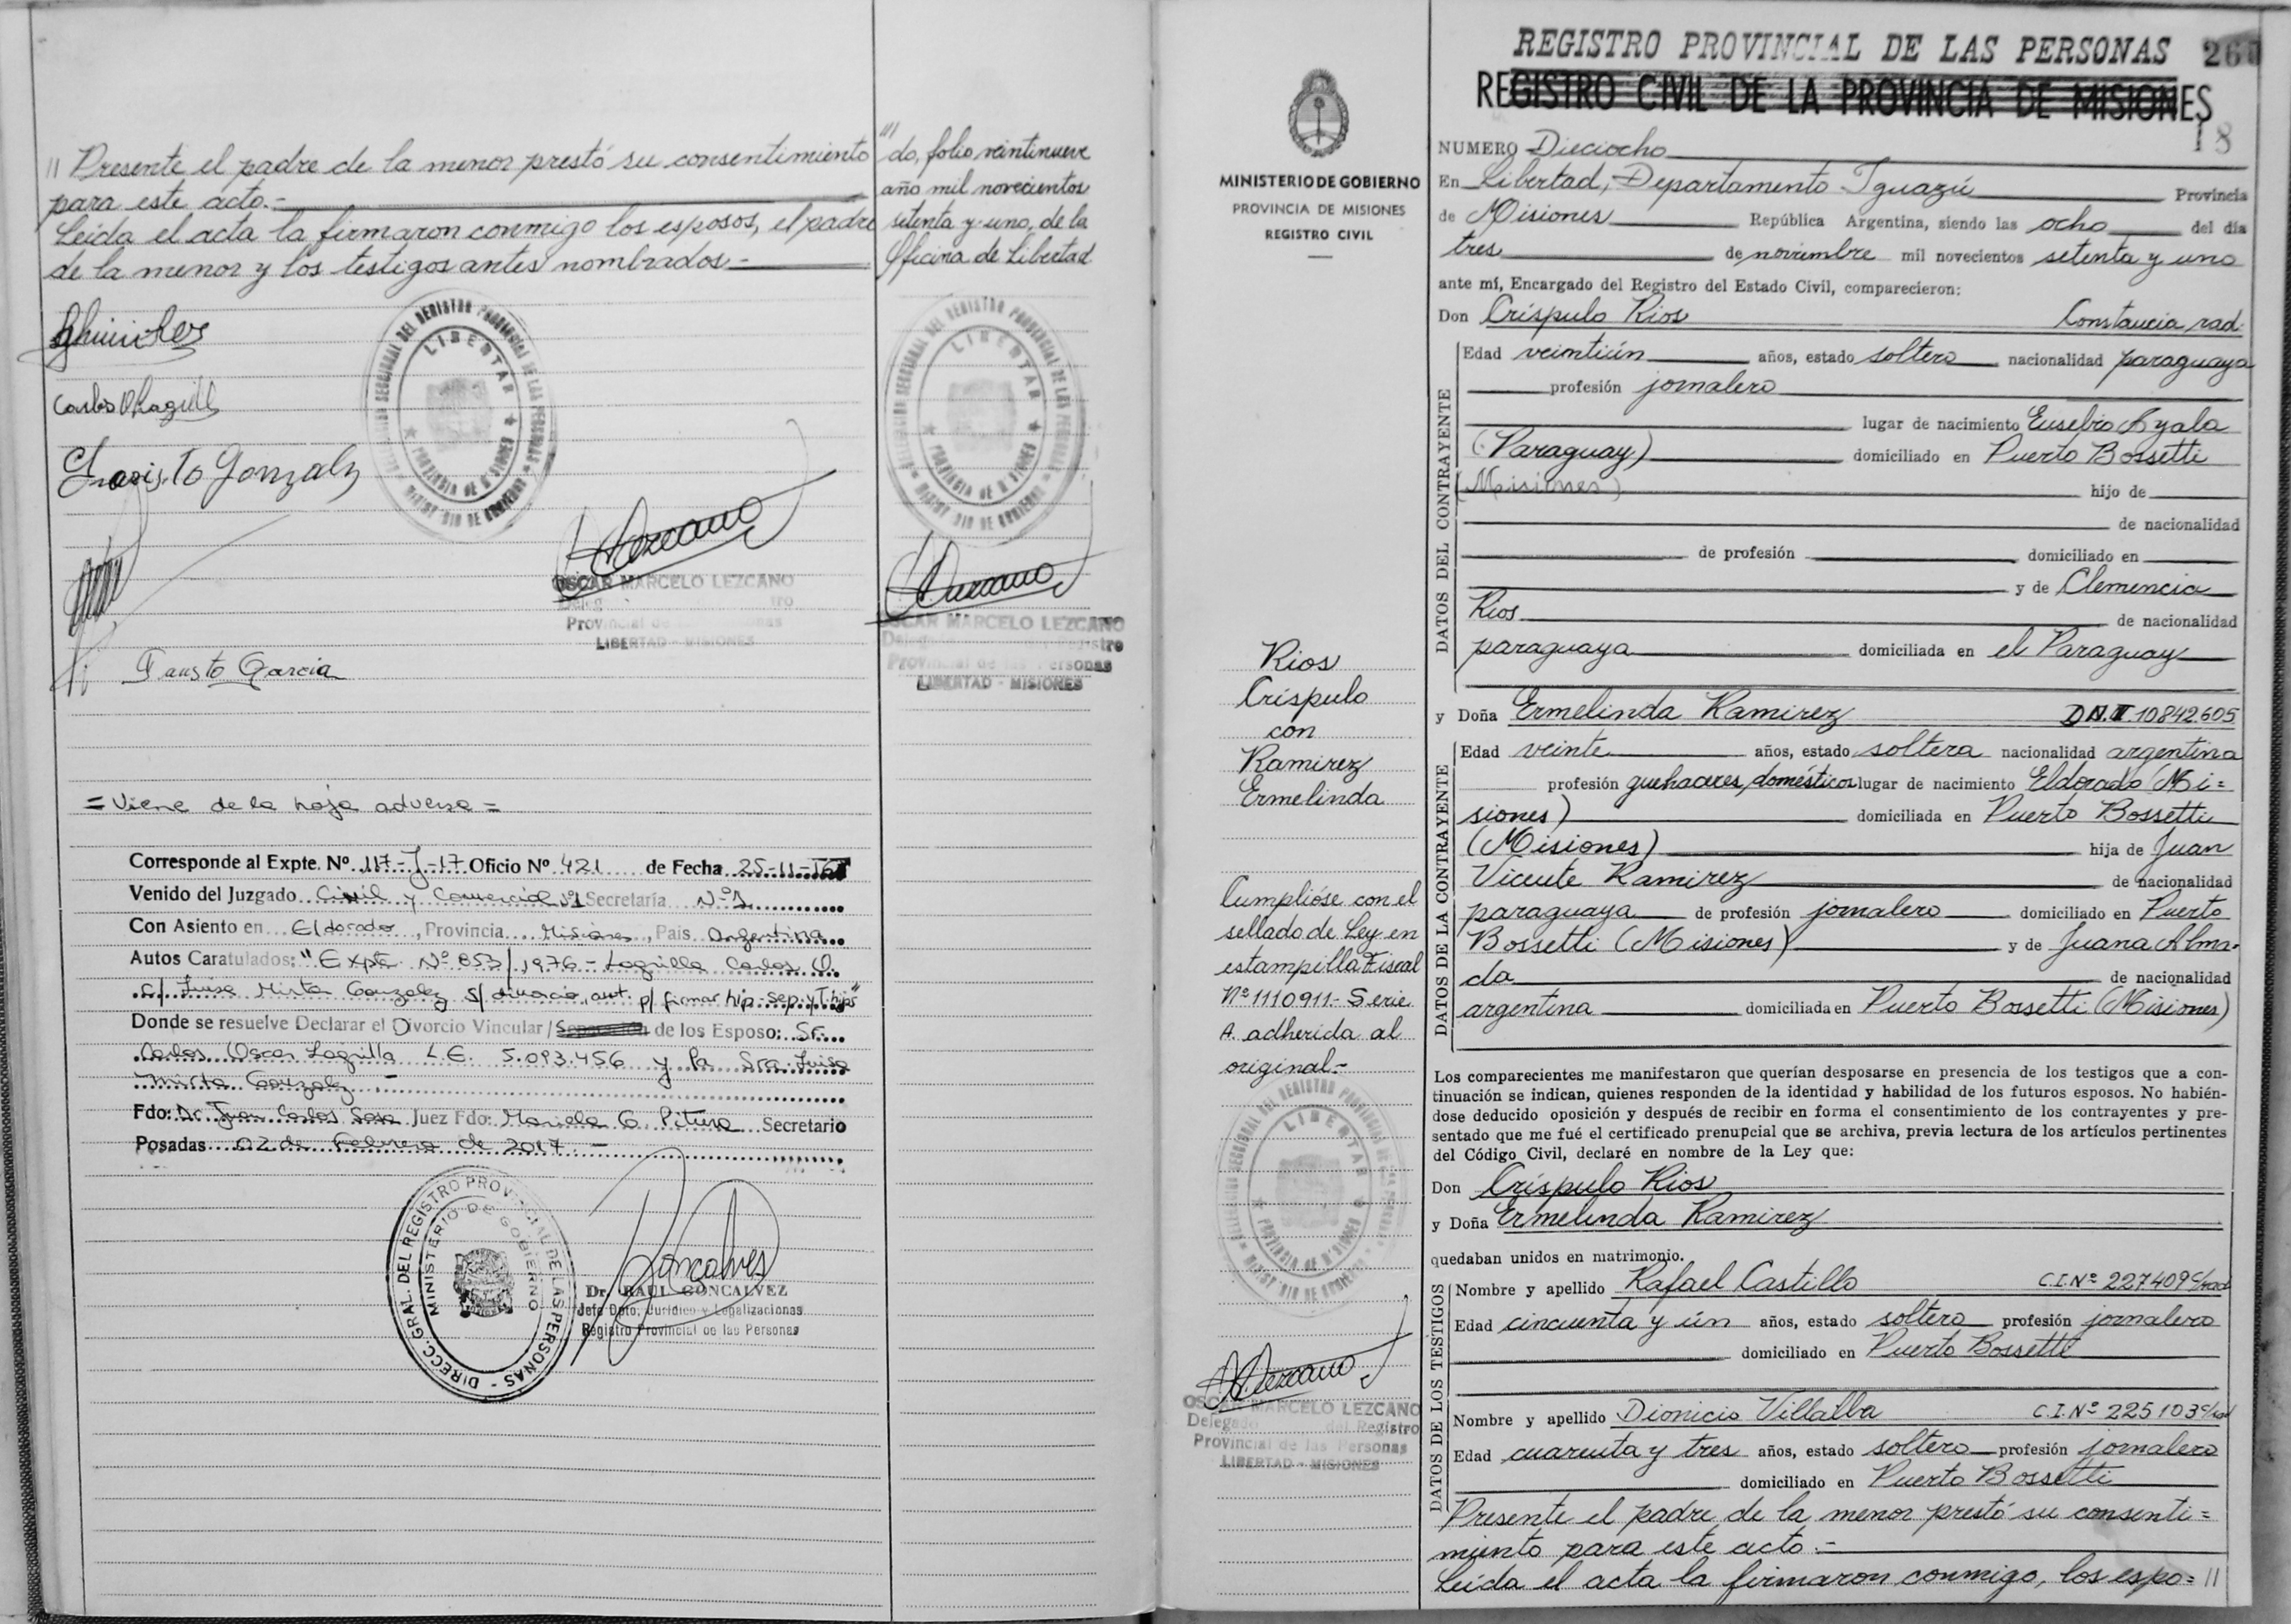 // Presente el padre de la menor prestó su consentimiento
para este acto.-
Leída el acta la firmaron conmigo los esposos, el padre
de la menor y los testigos antes nombrados.-
///
do, folio veintinueve
año mil novecientos
setenta y uno, de la
Oficina de Libertad
LIBERTAD
OSCAR MARCELO LEZCANO
Provincial de las Personas
LIBERTAD - MISIONES
OSCAR MARCELO LEZCANO
Provincial de las Personas
LIBERTAD - MISIONES
Fausto Garcia
= Viene de la hoja adversa =
Corresponde al Expte. Nº 117-J-17 Oficio Nº 421 de Fecha 25-11-16
Venido del Juzgado Civil y Comercial Nº1 Secretaría Nº1
Con Asiento en Eldorado, Provincia Misiones, País Argentina
Autos Caratulados: "Expte Nº 853/1976 - Lagrilla Carlos O.
c/ Luisa Mirta Gonzalez s/ divorcio, aut. p/ firmar hip. sep. y T. hijos"
Donde se resuelve Declarar el Divorcio Vincular / Separación de los Esposo: Sr.
Carlos Oscar Lagrilla L.E. 5.093.456 y la Sra Luisa
Mirta Gonzalez.-
Fdo: Dr. Juan Carlos Sosa Juez Fdo: Mariela G. Pitura Secretario
Posadas 02 de Febrero de 2017.-
DIRECC. GRAL. DEL REGISTRO PROVINCIAL DE LAS PERSONAS -
MINISTERIO DE GOBIERNO
Dr. RAUL GONCALVEZ
Jefe Dpto. Jurídico y Legalizaciones
Registro Provincial de las Personas
REGISTRO PROVINCIAL DE LAS PERSONAS 260
REGISTRO CIVIL DE LA PROVINCIA DE MISIONES
18
MINISTERIO DE GOBIERNO
PROVINCIA DE MISIONES
REGISTRO CIVIL
Rios
Críspulo
con
Ramirez
Ermelinda
Cumplióse con el
sellado de Ley en
estampilla Fiscal
Nº 1110911 - Serie
A. adherida al
original.-
LIBERTAD
OSCAR MARCELO LEZCANO
Delegado del Registro
Provincial de las Personas
LIBERTAD - MISIONES
NUMERO Dieciocho
En Libertad, Departamento Iguazú Provincia
de Misiones República Argentina, siendo las ocho del día
tres de noviembre mil novecientos setenta y uno
ante mí, Encargado del Registro del Estado Civil, comparecieron:
Don Críspulo Rios Constancia rad.
DATOS DEL CONTRAYENTE
Edad veintiún años, estado soltero nacionalidad paraguaya
profesión jornalero
lugar de nacimiento Eusebio Ayala
(Paraguay) domiciliado en Puerto Bossetti
(Misiones) hijo de
de nacionalidad
de profesión domiciliado en
y de Clemencia
Rios de nacionalidad
paraguaya domiciliada en el Paraguay
y Doña Ermelinda Ramirez D.N.I. 10842.605
DATOS DE LA CONTRAYENTE
Edad veinte años, estado soltera nacionalidad argentina
profesión quehaceres domésticos lugar de nacimiento Eldorado (Mi=
siones) domiciliada en Puerto Bossetti
(Misiones) hija de Juan
Vicente Ramirez de nacionalidad
paraguaya de profesión jornalero domiciliado en Puerto
Bossetti (Misiones) y de Juana Alma-
da de nacionalidad
argentina domiciliada en Puerto Bossetti (Misiones)
Los comparecientes me manifestaron que querían desposarse en presencia de los testigos que a con-
tinuación se indican, quienes responden de la identidad y habilidad de los futuros esposos. No habién-
dose deducido oposición y después de recibir en forma el consentimiento de los contrayentes y pre-
sentado que me fué el certificado prenupcial que se archiva, previa lectura de los artículos pertinentes
del Código Civil, declaré en nombre de la Ley que:
Don Críspulo Rios
y Doña Ermelinda Ramirez
quedaban unidos en matrimonio.
DATOS DE LOS TESTIGOS
Nombre y apellido Rafael Castillo C.I.Nº 227409 c/rad
Edad cincuenta y ún años, estado soltero profesión jornalero
domiciliado en Puerto Bossetti
Nombre y apellido Dionicio Villalba C.I.Nº 225103 c/rad
Edad cuarenta y tres años, estado soltero profesión jornalero
domiciliado en Puerto Bossetti
Presente el padre de la menor prestó su consenti=
miento para este acto.-
Leída el acta la firmaron conmigo, los espo= //